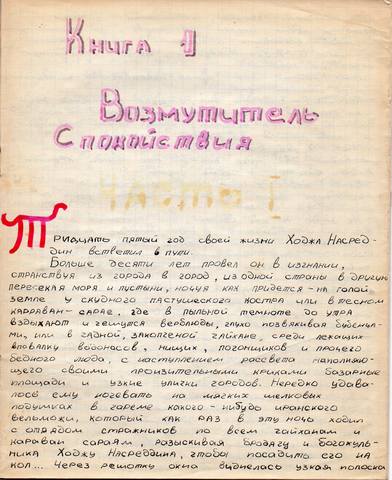 Книга 1
Возмутитель
Спокойствия
Часть I
Тридцать пятый год своей жизни Ходжа Насред-
дин встретил в пути.
Больше десяти лет провел он в изгнании,
странствуя из города в город, из одной страны в другую
пересекая моря и пустыни, ночуя как придется – на голой
земле у скудного пастушеского костра или в тесном
карраван-сарае, где в пыльной темноте до утра
вздыхают и чешутся верблюды, глухо позвякивая бубенца-
ми, или в чадной, закопчёной чайхане, среди лежащих
вповалку водоносов, нищих, погонщиков и прочего
бедного люда, с наступлением рассвета наполняю-
щего своими пронзительными криками базарные
площади и узкие улички городов. Нередко удава-
лось ему ночевать на мягких шелковых
подушках в гареме какого-нибудь иранского
вельможи, который как раз в эту ночь ходил
с отрядом стражников по всем чайханам и
караван сараям, разыскивая бродягу и богохуль-
ника Ходжу Насреддина, чтобы посадить его на
кол... Через решотку окна виднелась узкая полоска